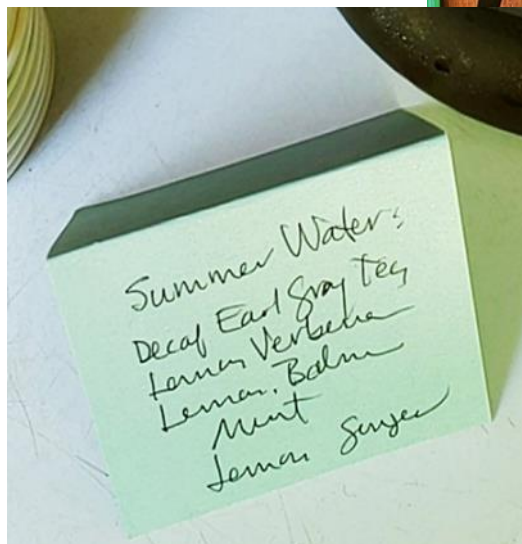 Summer Water:
Decaf Earl Gray Tea
Lemon Verbena
Lemon Balm
Mint
Lemon Ginger